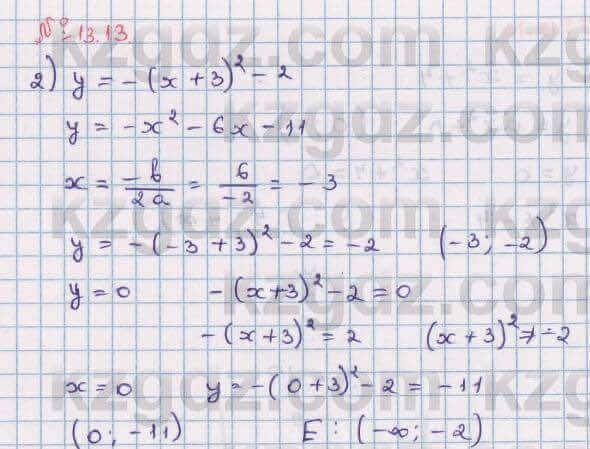 № 13.13.
2) y = -(x + 3)² - 2
y = -x² - 6x - 11
x = -b/2a = 6/-2 = -3
y = -(-3 + 3)² - 2 = -2 (-3; -2)
y = 0 -(x+3)² - 2 = 0
-(x+3)² = 2 (x+3)² ≠ -2
x = 0 y = -(0+3)² - 2 = -11
(0; -11) E: (-∞; -2)
kzgdz.com